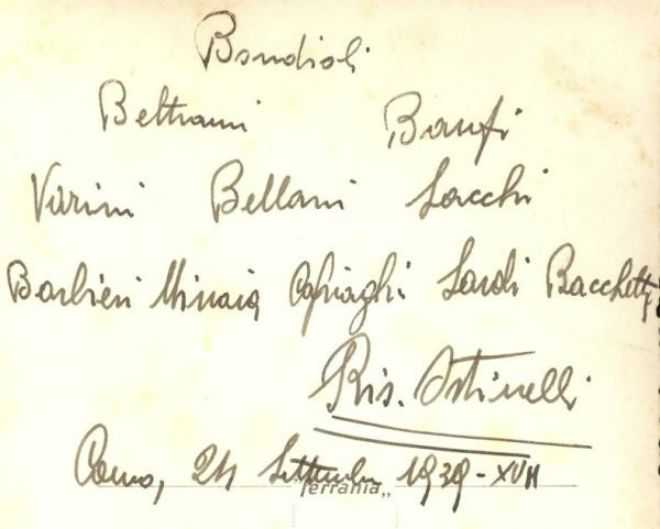 Bondioli
Beltrami Banfi
Varini Bellani Sacchi
Barbieri Minaia Capiaghi Sardi Bacchetti
Ris. Ostinelli
Como, 24 Settembre 1939-XVII
Ferrania